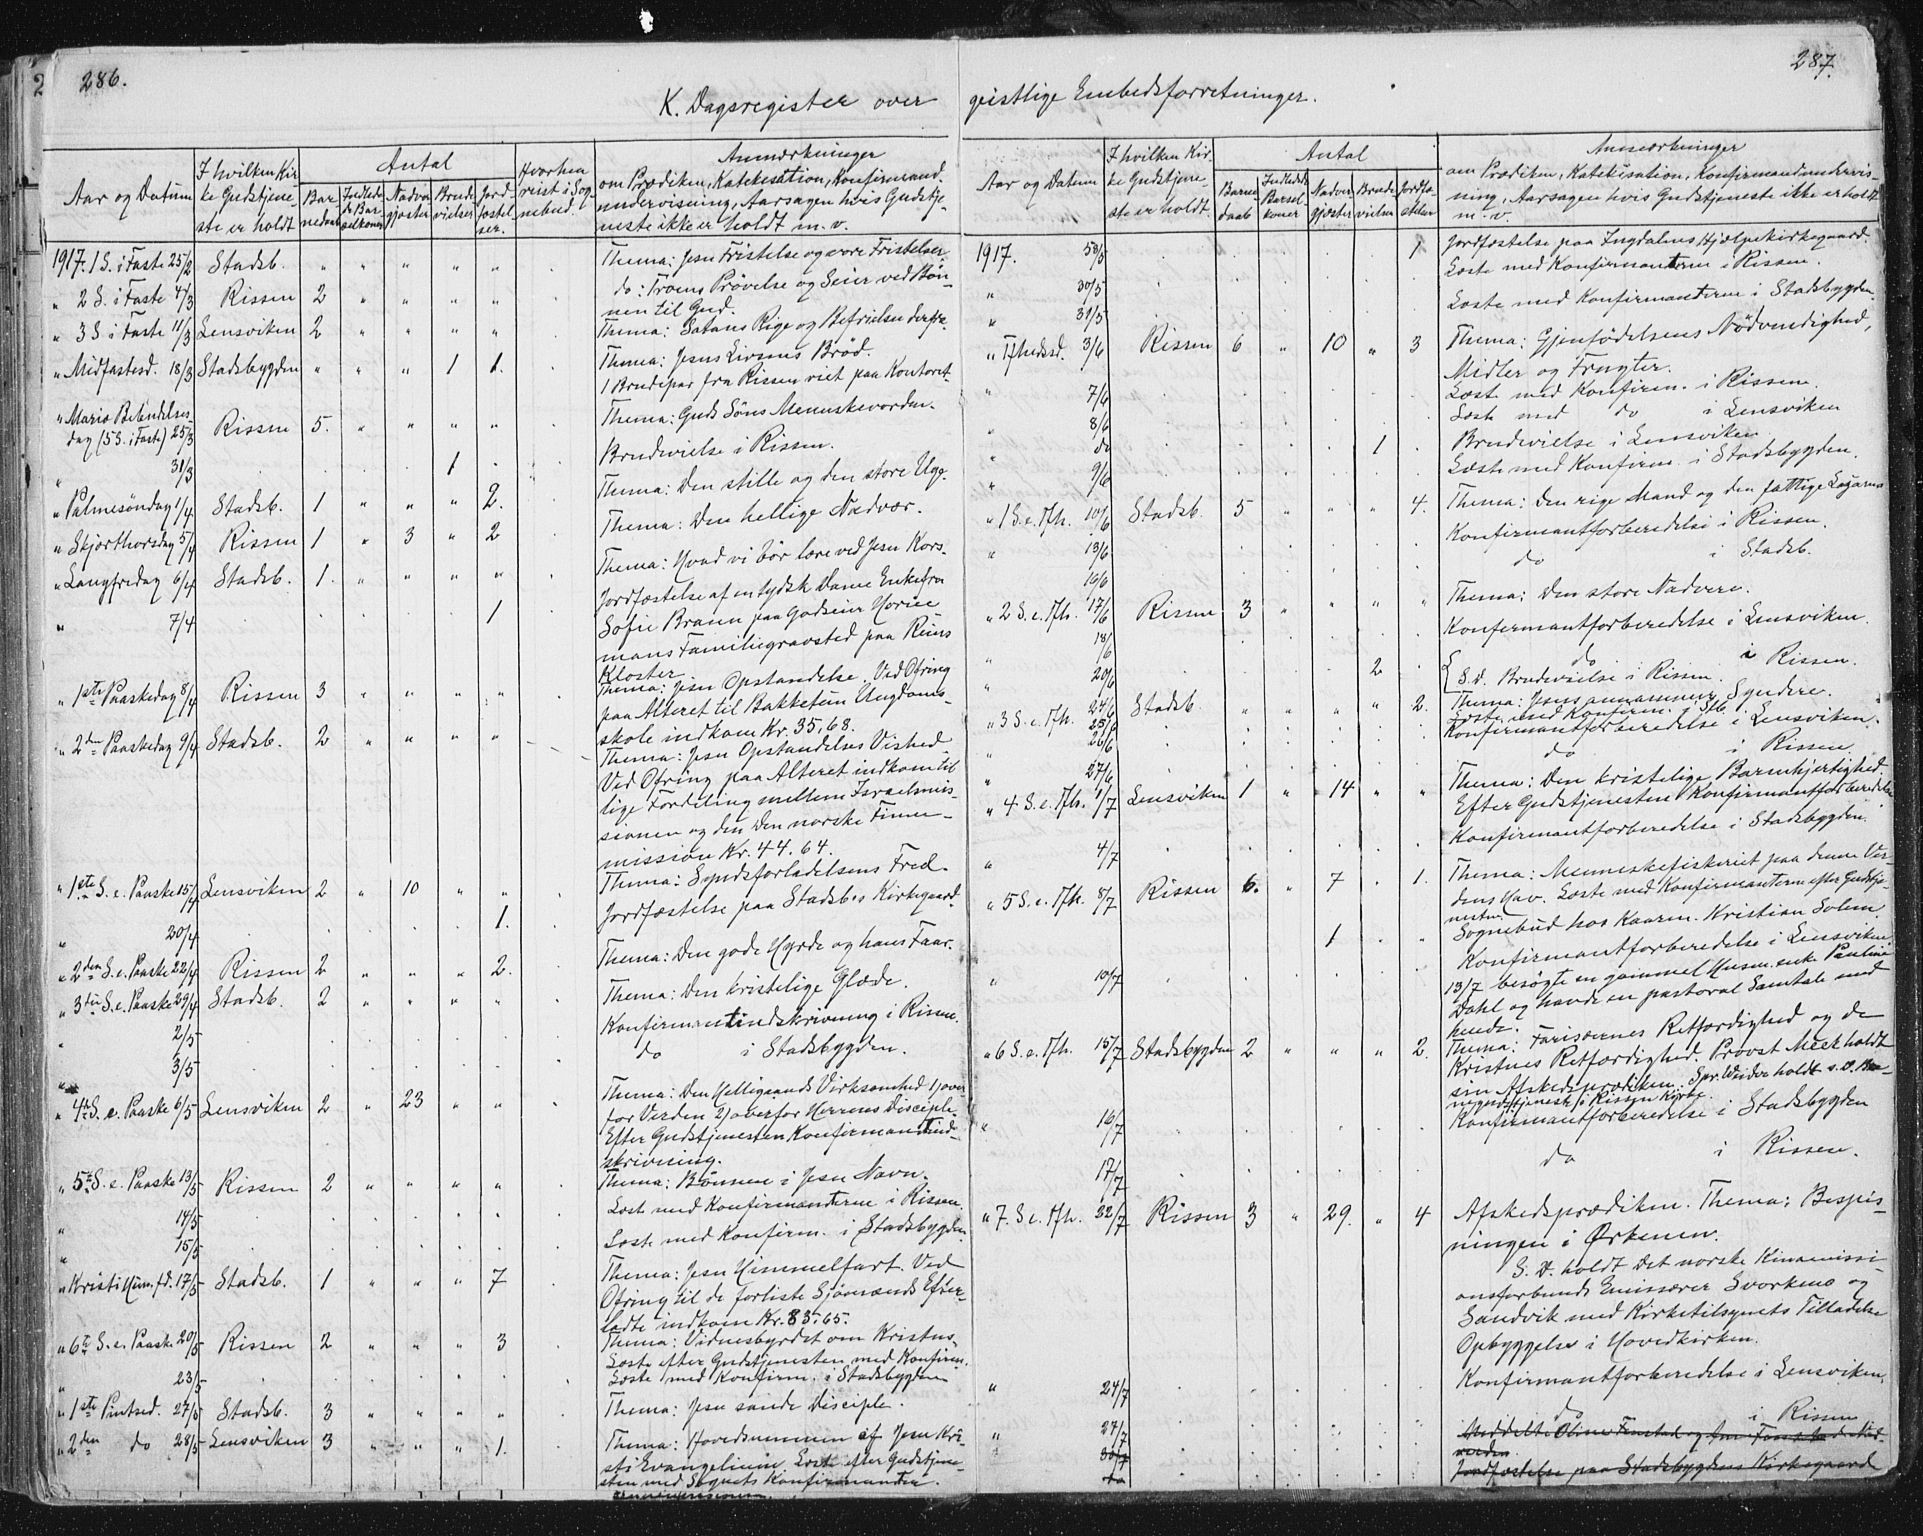 286.
K. Dagsregister over
Aar og Datum
I hvilken Kir-
ke Gudstjene-
ste er holdt
Antal
Bar-
nedaab
Indlede-
de Bar-
selkoner
Nadver-
gjester
Brude-
vielser
Jord-
fæstel-
ser.
Hvorhen
reist i Sog-
nebud.
Anmærkninger
om Prædiken, Katekisation, Konfirmand-
undervisning, Aarsagen hvis Gudstje-
neste ikke er holdt m. v.
1917. 1 S. i Faste 25/2 Stadsb. " " " " " Thema: Jesu Fristelse og vore Fristelser
" 2 S. i Faste 4/3 Rissen 2 " " " " do: Troens Prøvelse og Seier ved Bøn-
nen til Gud.
" 3 S i Faste 11/3 Lensviken 2 " " " " Thema: Satans Rige og Befrielsen derfra.
" Midfastesd. 18/3 Stadsbygden " " " 1 1. Thema: Jesus Livsens Brød.
1 Brudepar fra Rissen viet paa Kontoret
" Maria Bebudelses-
dag (5 S. i Faste) 25/3 Rissen 5. " " " " Thema: Guds Søns Menneskevorden.
" 31/3 1 Brudevielse i Rissen.
" Palmesøndag 1/4 Stadsb. 1 " " " 2. Thema: Den stille og den store Uge.
" Skjærthorsdag 5/4 Rissen 1 " 3 " 2 Thema: Den hellige Nadver.
" Langfredag 6/4 Stadsb. 1. " " " " Thema: Hvad vi bør lære ved Jesu Kors.
" 7/4 1 Jordfæstelse af en tydsk Dame Enkefru
Sofie Braun paa Godseier Horne-
mans Familiegravsted paa Reins
Kloster
" 1ste Paaskedag 8/4 Rissen 3 " " " " Thema: Jesu Opstandelse. Ved Ofring
paa Alteret til Bakketun Ungdoms-
skole indkom Kr. 35,68.
" 2den Paaskedag 9/4 Stadsb. 2 " " " " Thema: Jesu Opstandelses Vished
Ved Ofring paa Alteret indkom til
lige Fordeling mellem Israelsmis-
sionen og den Den norske Finne-
mission Kr. 44.64.
" 1ste S. e. Paaske 15/4 Lensviken 2 " 10 " " Thema: Syndsforladelsens Fred.
" 20/4 1. Jordfæstelse paa Stadsb.s Kirkegaard.
" 2den S. e. Paaske 22/4 Rissen 2 " " " 2. Thema: Den gode Hyrde og hans Faar.
" 3die S. e. Paaske 29/4 Stadsb. 2 " " " " Thema: Den kristelige Glæde.
" 2/5 Konfirmantindskrivning i Rissen.
" 3/5 do i Stadsbygden.
" 4de S. e. Paaske 6/5 Lensviken 2 " 23 " " Thema: Den Helligaands Virksomhed 1) over
for Verden 2) overfor Herrens Disciple.
Efter Gudstjenesten Konfirmantind-
skrivning.
" 5te S. e. Paaske 13/5 Rissen 2 " " " " Thema: Bønnen i Jesu Navn.
" 14/5 Læste med Konfirmanterne i Rissen.
" 15/5 Læste med Konfirm. i Stadsbygden
" Kristi Himf.d. 17/5 Stadsb. 1 " " " 7 Thema: Jesu Himmelfart. Ved
Ofring til de forliste Sjømænds Efter-
ladte indkom Kr. 83.65.
" 6te S. e. Paaske 20/5 Rissen 2 " " " 3 Thema: Vidnesbyrdet om Kristus.
Læste efter Gudstjenesten med Konfirm.
" 23/5 Læste med Konfirm. i Stadsbygden
" 1ste Pintsed. 27/5 Stadsb. 3 " " " " Thema: Jesu sande Disciple.
" 2den do 28/5 Lensviken 3 " " " 1. Thema: Hovedsummen af Jesu Kri-
sti Evangelium. Læste efter Gudstjene-
sten med Sognets Konfirmanter.
287.
geistlige Embedsforretninger.
Aar og Datum
I hvilken Kir-
ke Gudstjene-
ste er holdt.
Antal
Barne-
daab
Indledede
Barsel-
koner
Nadver-
gjester
Brude-
vielser
Jordfæ-
stelser
Anmærkninger
om Prædiken, Katekisation, Konfirmandundervis-
ning, Aarsagen hvis Gudstjeneste ikke er holdt
m. v.
1917. 1 Jordfæstelse paa Ingdalens Hjælpekirkegaard.
Læste med Konfirmanterne i Rissen.
" 30/5 Læste med Konfirmanterne i Stadsbygden.
" 31/5
" Tfhedsd. 3/6 Rissen 6 " 10 " 3 Thema: Gjenfødelsens Nødvendighed,
Midler og Frugter.
" 7/6 Læste med Konfirm. i Rissen.
" 8/6 Læste med do i Lensviken
" do 1 Brudevielse i Lensviken
" 9/6 Læste med Konfirm. i Stadsbygden.
" 1 S. e. Tfh. 10/6 Stadsb. 5 " " " 4. Thema: Den rige Mand og den fattige Lazarus
" 13/6 Konfirmantforberedelse i Rissen.
16/6 do i Stadsb.
" 2 S. e. Tfh. 17/6 Rissen 3 " " " " Thema: Den store Nadvere.
" 18/6 Konfirmantforberedelse i Lensviken.
" 20/6 2 do i Rissen.
S. D. Brudevielse i Rissen.
" 3 S. e. Tfh. 24/6 Stadsb " " " " 2. Thema: Jesus annammer Syndere.
25/6 Læste med Konfirm. i Stb.
" 26/6 Konfirmantforberedelse i Lensviken.
" 27/6 do i Rissen
" 4 S. e. Tfh. 1/7 Lensviken 1 " 14 " " Thema: Den kristelige Barmhjertighed.
Efter Gudstjenesten Konfirmantforberedelse
" 4/7 Konfirmantforberedelse i Stadsbygden.
" 5 S. e. Tfh. 8/7 Rissen 6. " 7 . 1. Thema: Menneskefiskeriet paa denne Ver-
dens Hav. Læste med Konfirmanterne efter Gudstje-
nesten.
1 " " Sognebud hos Kaarm. Kristian Solem.
" 10/7 Konfirmantforberedelse i Lensviken
13/7 besøgte en gammel Husm.enke Pauline
Dahl og havde en pastoral Samtale med
hende.
" 6 S. e. Tfh. 15/7 Stadsbygden 2 " " " 2. Thema: Farisæernes Retfærdighed og de
Kristnes Retfærdighed. Provst holdt
sin Afskedsprædiken. Spr. holdt s. D.
i Rissen Kirke.
" 16/7 Konfirmantforberedelse i Stadsbygden
17/7 do i Rissen.
" 7. S. e. Tfh. 22/7 Rissen 3 " 29. " 4 Afskedsprædiken. Thema: Bespis-
ningen i Ørkenen.
S. D. holdt det norske Kinamissi-
onsforbunds Emissærer Svorkmo og
Sandvik med Kirketilsynets Tilladelse
Opbyggelse i Hovedkirken.
" 24/7 Konfirmantforberedelse i Lensviken.
" 27/7 do i Rissen
Meddelte Oline Fenstad og
Jordfæstelse paa Stadsbygdens Kirkegaard